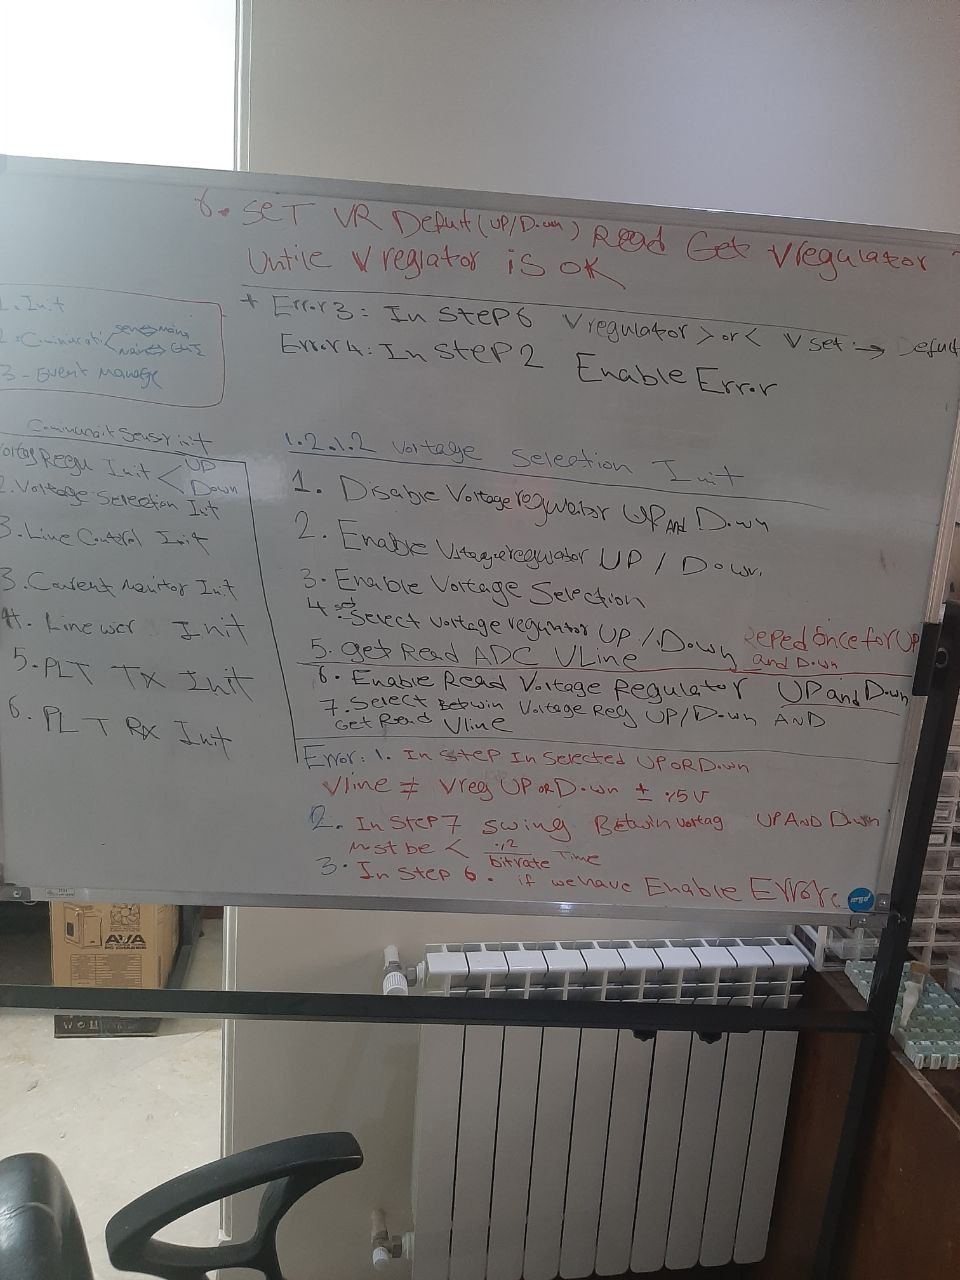 6. SET VR Defult (UP/Down) Read Get Vregulator
Untile Vreglator is OK
* Error 3: In Step 6 Vregulator > or < V set → Defult
Error 4: In Step 2 Enable Error
1. Init
3 - Event Manage
Init
Regu Init < UP
Down
2. Voltage Selection Init
3. Line Control Init
3. Current Monitor Init
4. Line Init
5. PLT TX Init
6. PLT Rx Init
1.2.1.2 Voltage Selection Init
1. Disable Voltage regulator UP And Down
2. Enable Voltageregulator UP / Down.
3. Enable Voltage Selection
4. Select voltage regulator UP / Down
5. get Read ADC VLine
Reped once for UP
and Down
6. Enable Read Voltage Regulator UP and Down
7. Select Betwin Voltage Reg UP/Down AND
Get Read Vline
Error: 1. In Step In Selected UP OR Down
Vline ≠ Vreg UP OR Down ± %5 V
2. In Step 7 swing Betwin voltag UP AND Down
must be < bitrate Time
3. In Step 6. if we have Enable Error
AVA